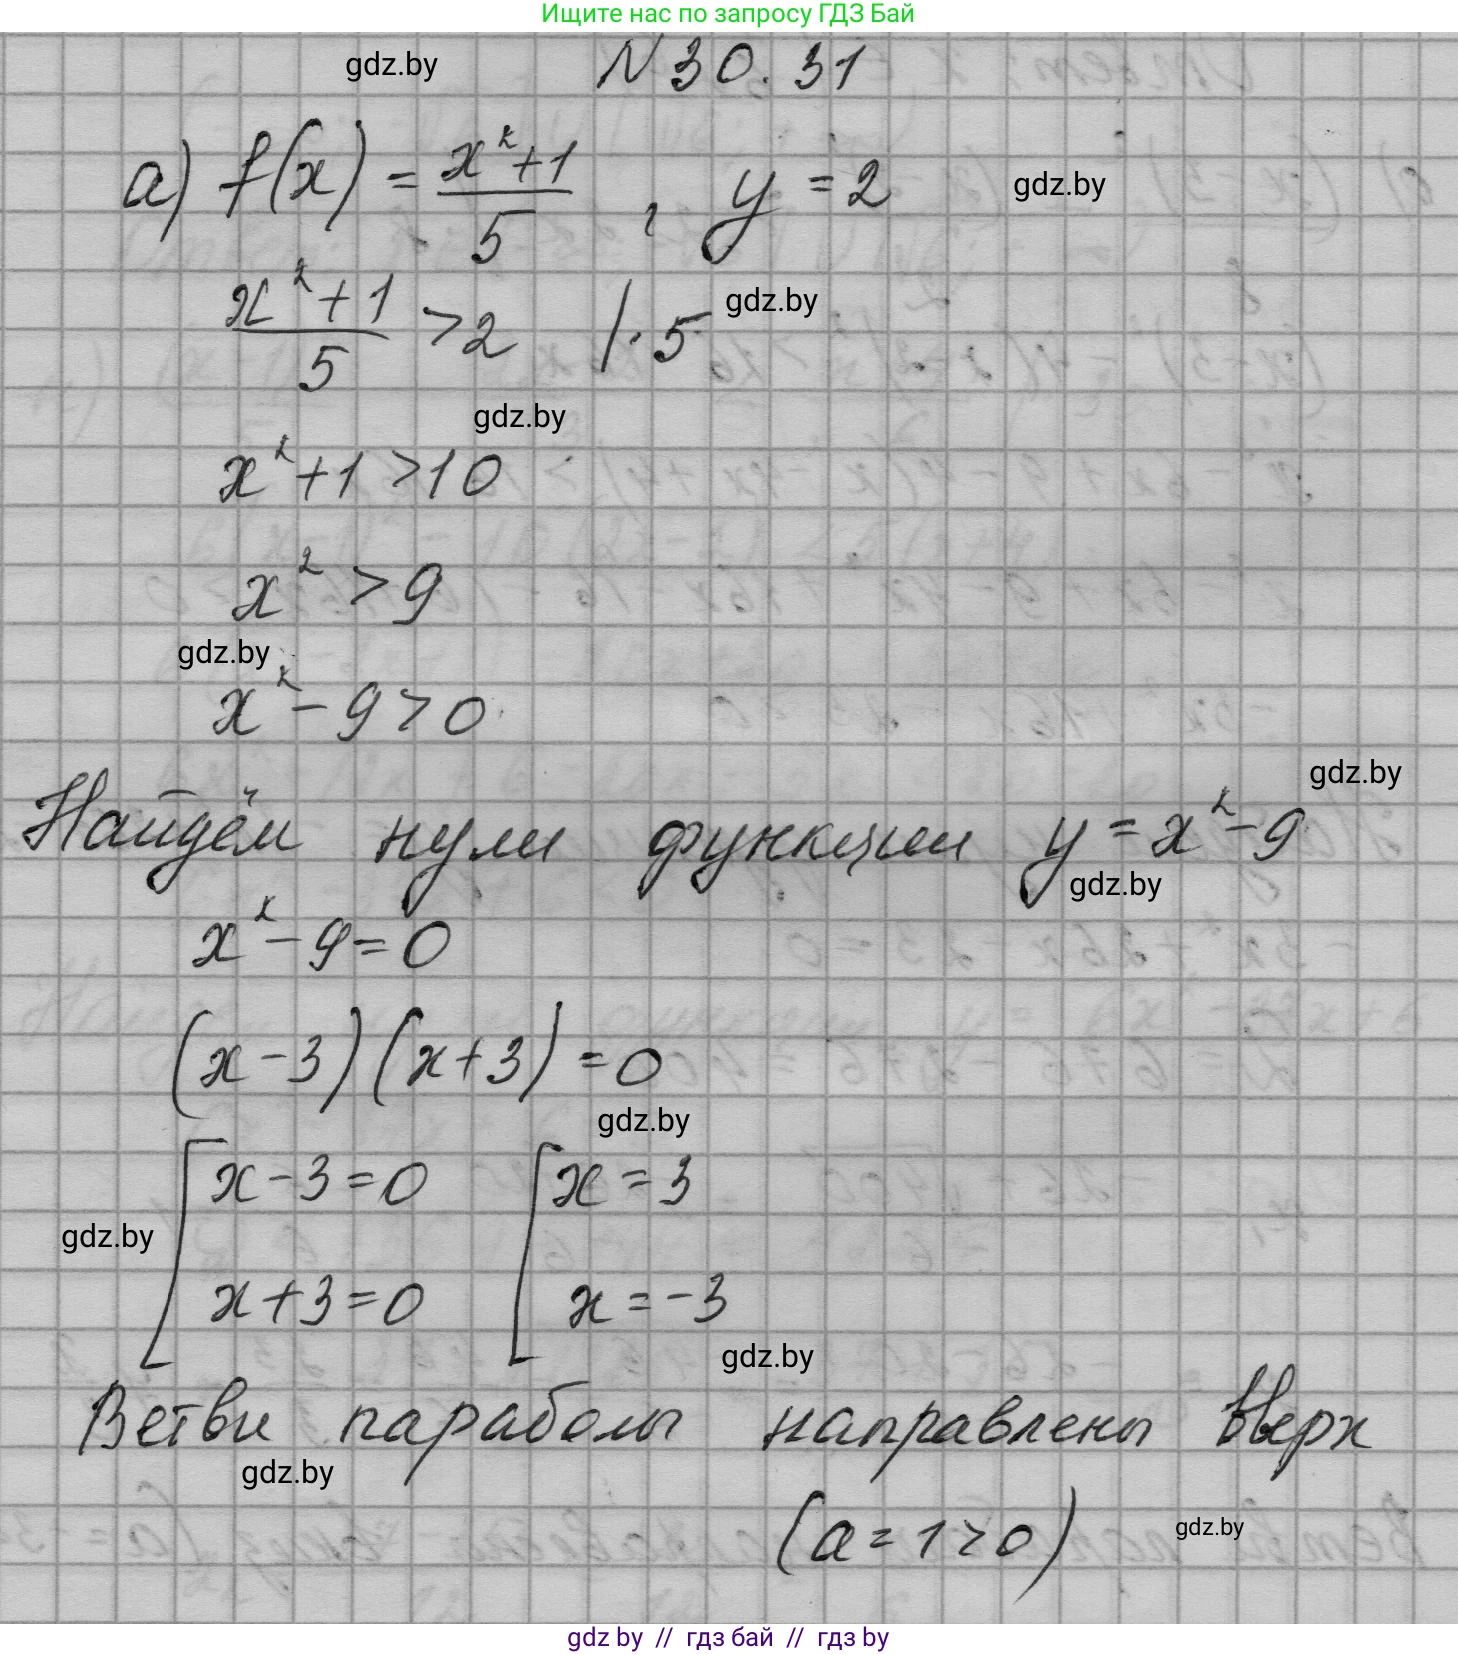 Ищите нас по запросу ГДЗ Бай
gdz.by
N 30. 31
а) f(x) = (x²+1)/5 , y = 2
gdz.by
(x²+1)/5 > 2 |·5
gdz.by
gdz.by
x²+1 > 10
x² > 9
gdz.by
x² - 9 > 0
gdz.by
Найдём нули функции y = x² - 9
gdz.by
x² - 9 = 0
(x - 3) (x + 3) = 0
gdz.by
[ x - 3 = 0 [ x = 3
gdz.by
x + 3 = 0 x = -3
gdz.by
Ветви параболы направлены вверх
gdz.by
(a = 1 > 0)
gdz.by
gdz by // гдз бай // гдз by